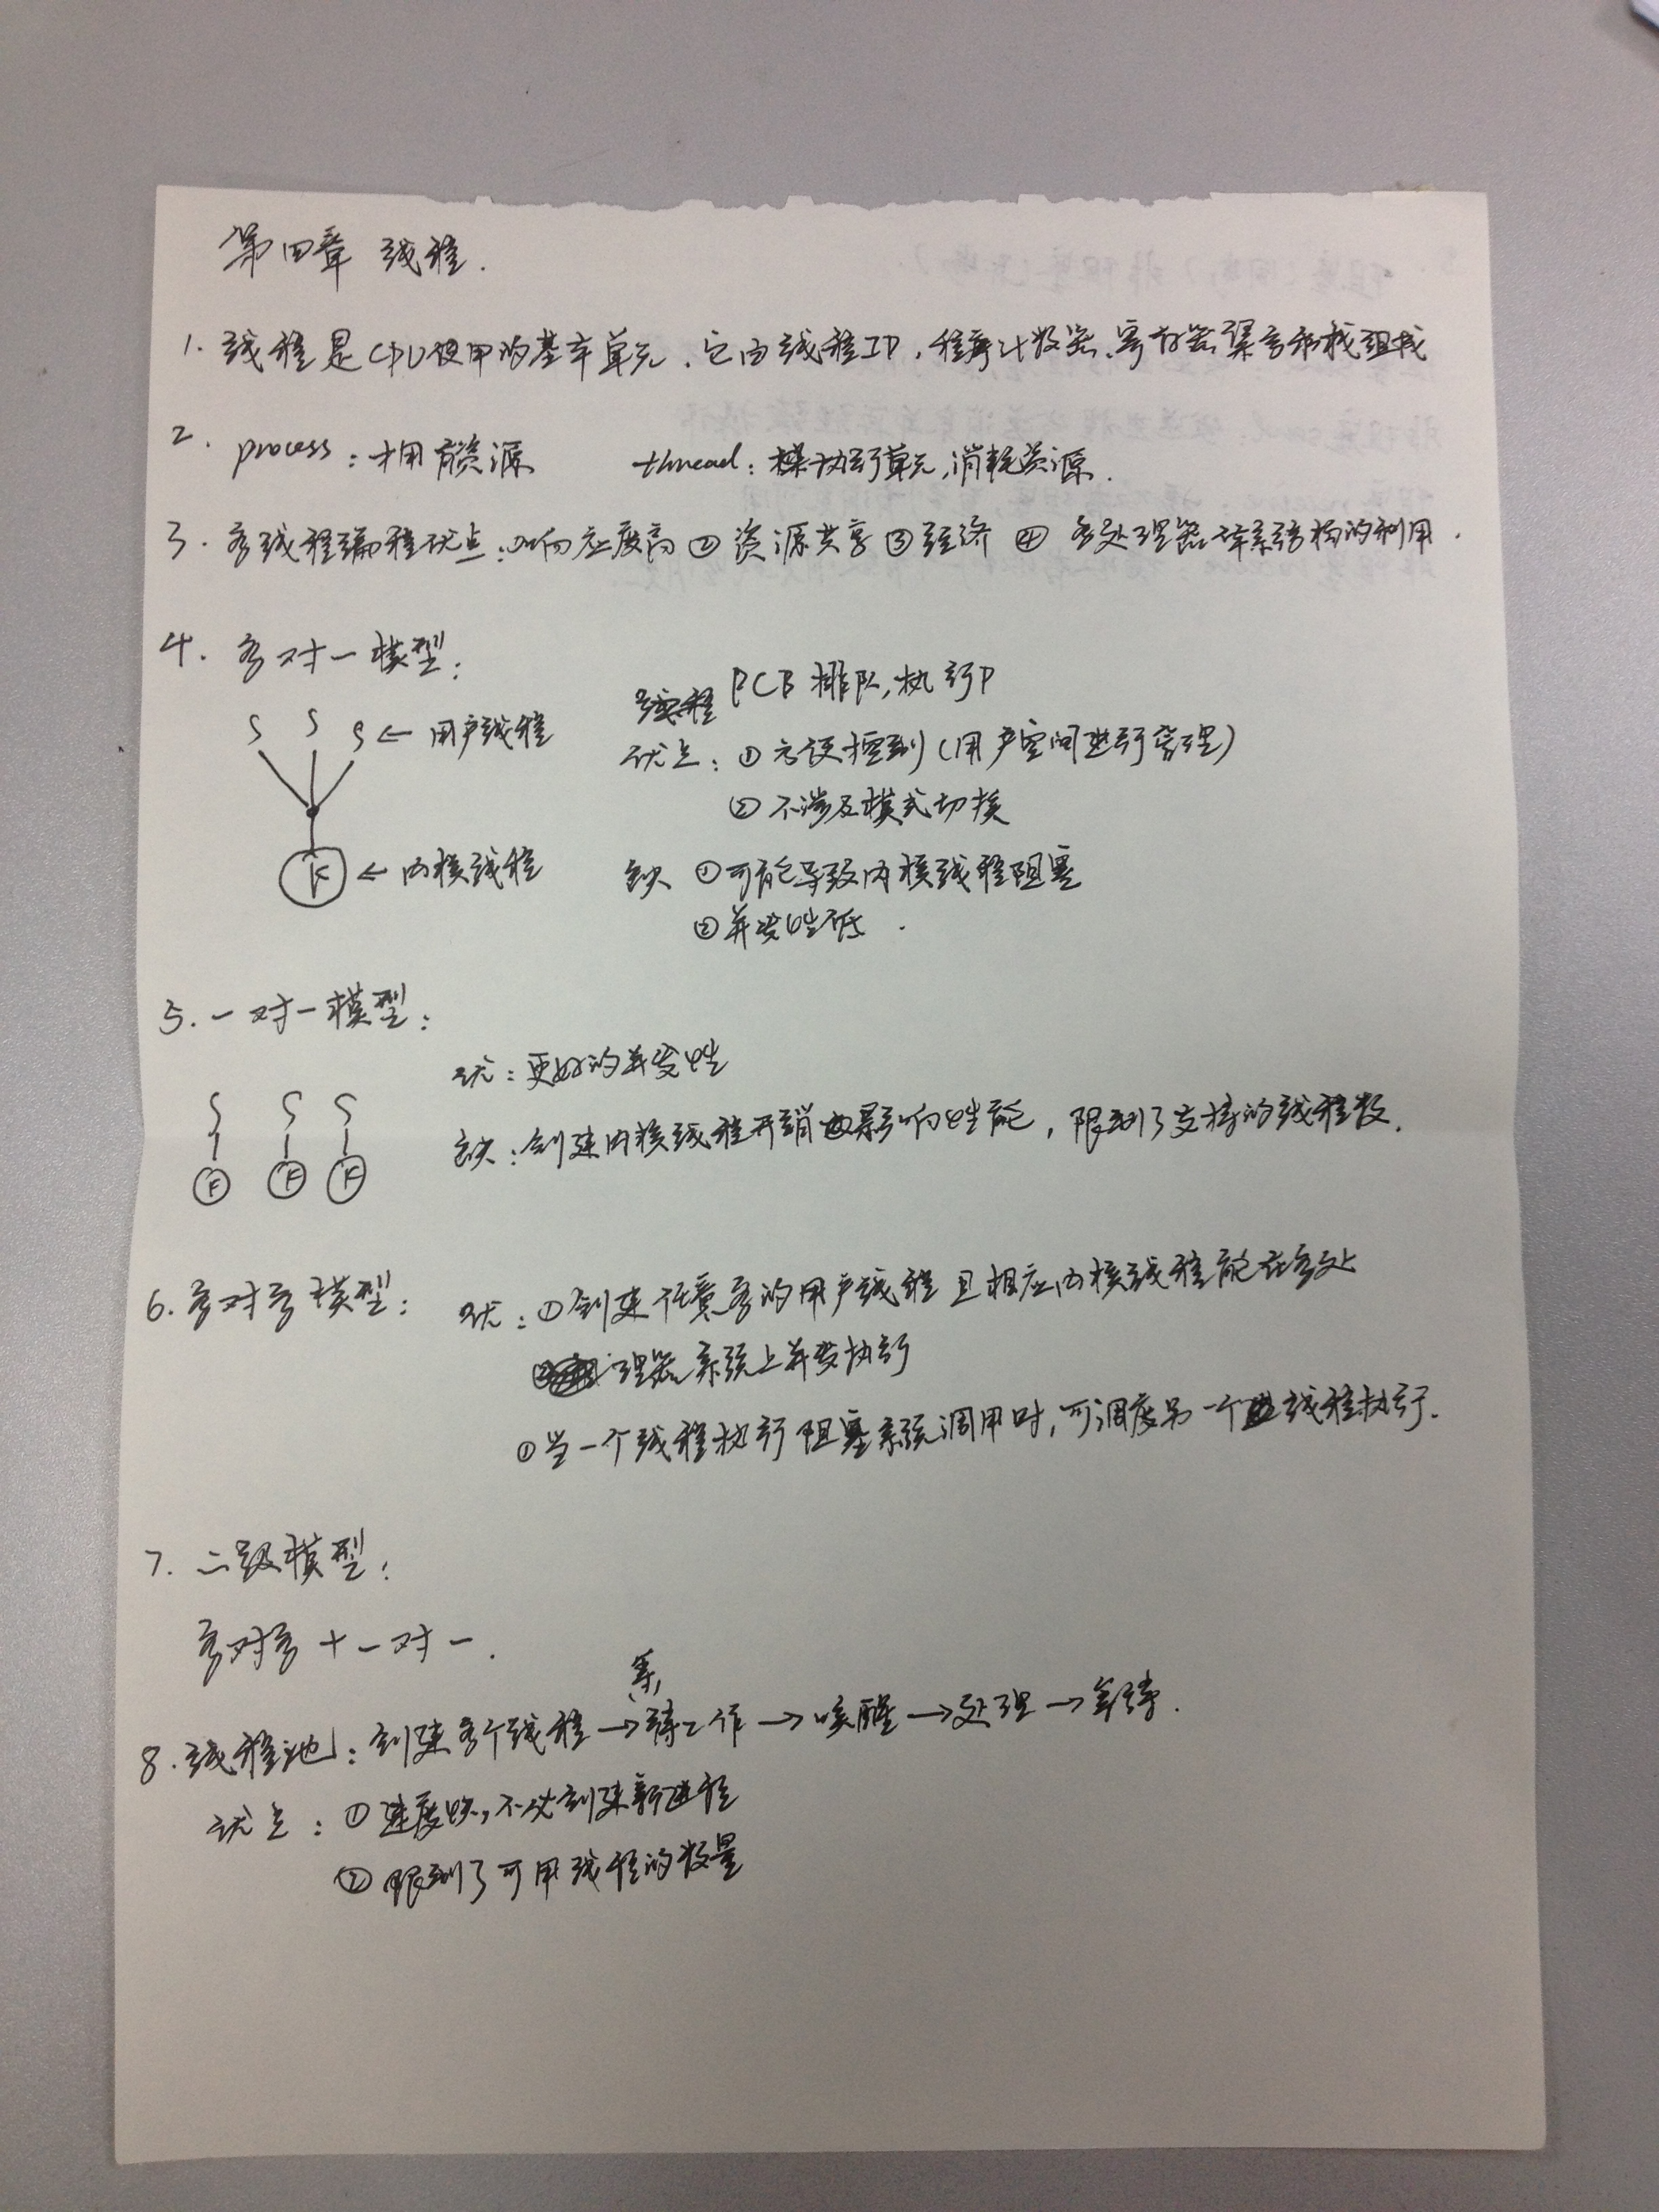 第四章 线程.
1. 线程是CPU使用的基本单元.它由线程ID,程序计数器、寄存器集合和栈组成
2. process:拥有资源 thread:执行单元,消耗资源.
3. 多线程编程优点:①响应度高 ② 资源共享 ③ 经济 ④ 多处理器体系结构的利用.
4. 多对一模型:
线程PCB排队,执行P
S S S ← 用户线程
优点:① 方便控制(用户空间进行管理)
② 不涉及模式切换
K ← 内核线程
缺 ①可能导致内核线程阻塞
②并发性低.
5. 一对一模型:
优:更好的并发性
S S S
缺:创建内核线程开销会影响性能,限制了支持的线程数.
K K K
6. 多对多模型: 优:①创建任意多的用户线程且相应内核线程能在多处
理器系统上并发执行
①当一个线程执行阻塞系统调用时,可调度另一个线程执行.
7. 二级模型:
多对多+一对一.
8. 线程池:创建多个线程→等待工作→唤醒→处理→等待.
优点:① 速度快,不必创建新进程
② 限制了可用线程的数量